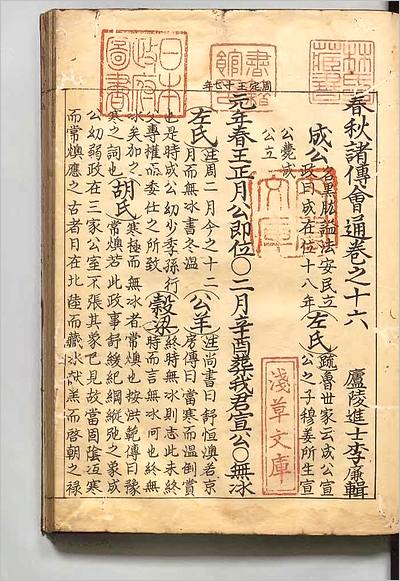 林氏藏書
書籍館印
日本政府圖書
春秋諸傳會通卷之十六　廬陵進士李廉輯
成公 名黑肱謚法安民立
政曰成在位十八年 左氏 疏魯世家云成公宣
公之子穆姜所生宣
公薨成
公立
元年春王正月公即位〇二月辛酉葬我君宣公〇無冰
左氏 注周二月今之十二
月而無冰書冬溫 公羊 注尚書曰舒恒燠若京
房傳曰當寒而溫倒賞
也是時成公幼少季孫行
父專權而委任之所致 穀梁 終時無冰則志此未終
時而言無冰何也終無
冰矣加之
寒之詞也 胡氏 寒極而無冰者常燠也按洪範傳曰豫
常燠若此政事舒緩紀綱縱弛之象成
公幼弱政在三家公室不張其象已見故當固陰沍寒
而常燠應之古者日在北陸而藏冰獻羔而啓朝之祿
淺草文庫